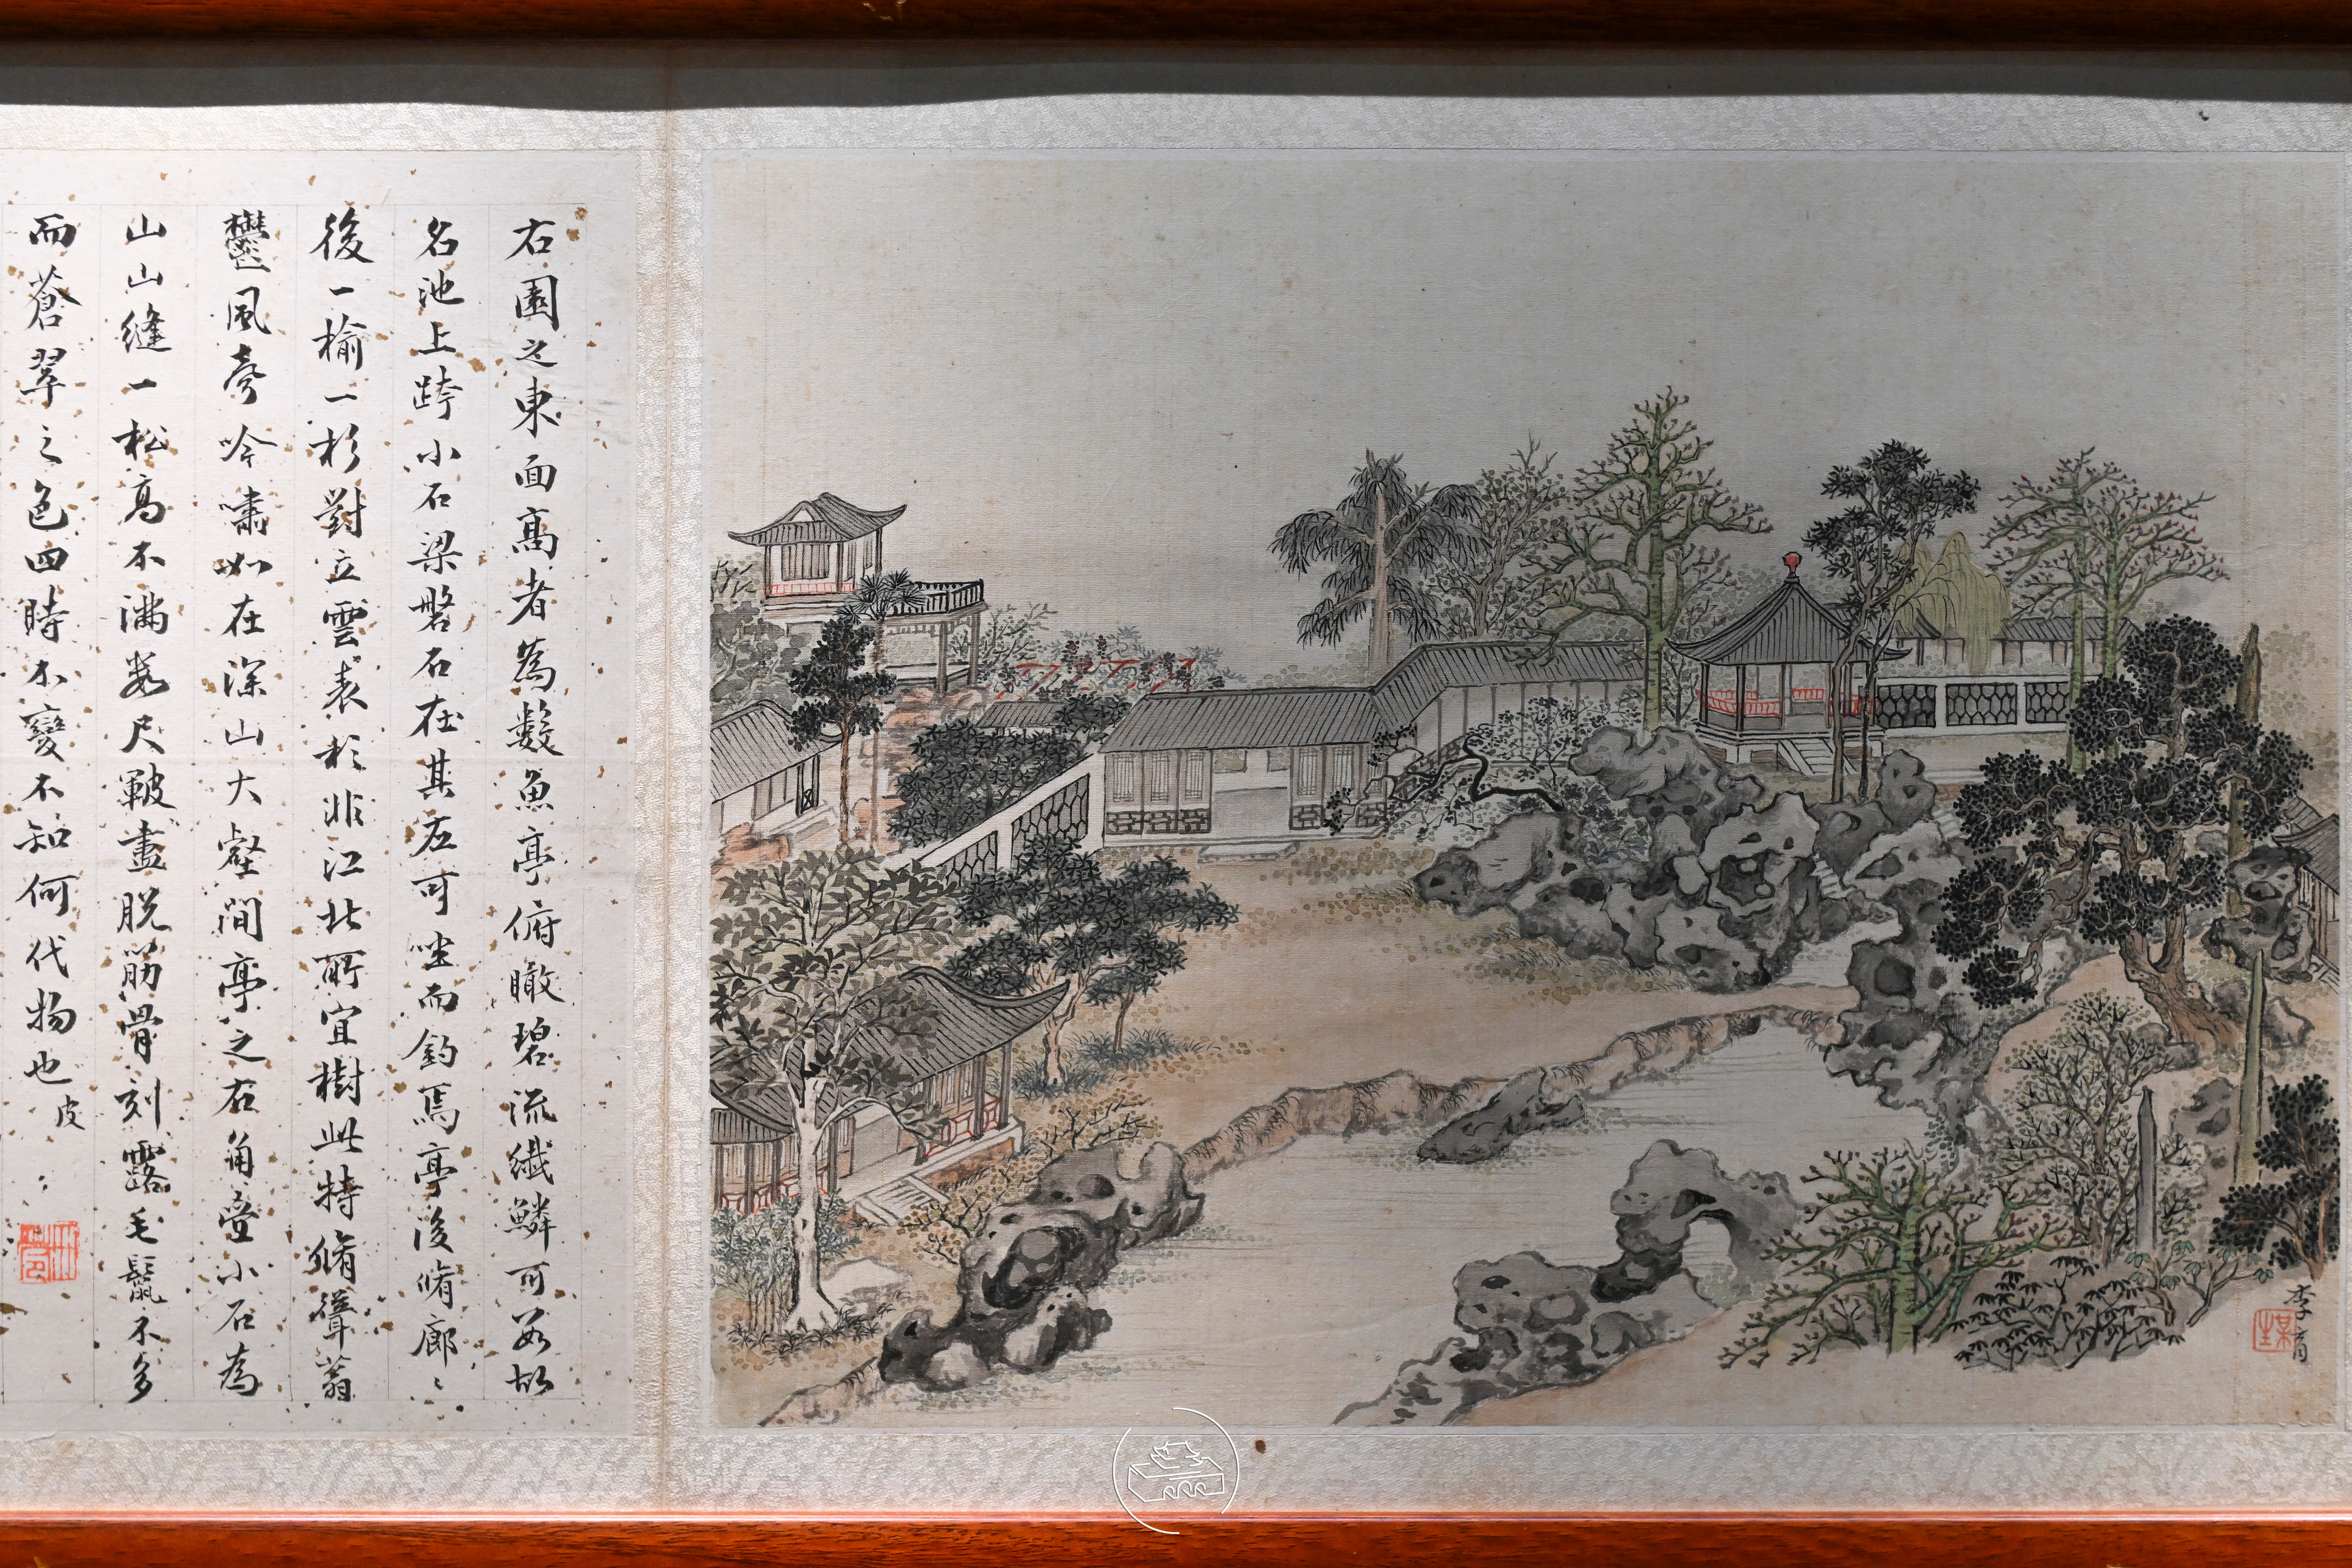 右園之東面高者為數魚亭俯瞰碧流纖鱗可數故
名池上跨小石梁磐石在其左可坐而釣焉亭後脩廊〻
後一榆一杉對立雲表杉非江北所宜樹此特脩聳蓊
鬱風聲吟嘯如在深山大壑間亭之右角疊小石為
山山縫一松高不滿數尺皴盡脫筋骨刻露毛鬣不多
而蒼翠之色四時不變不知何代物也
皮〻
李育